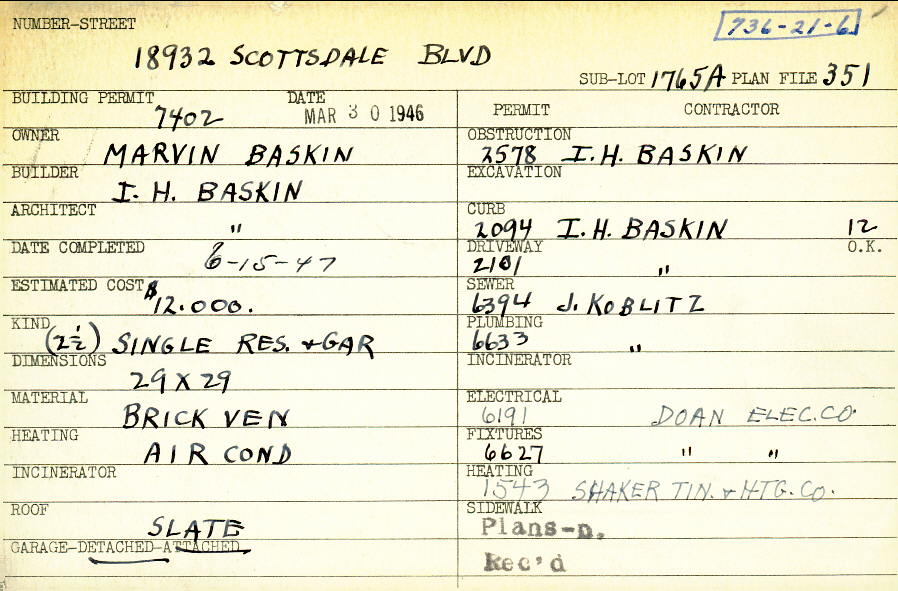 NUMBER-STREET
736-21-6
18932 SCOTTSDALE BLVD
SUB-LOT 1765A PLAN FILE 351
BUILDING PERMIT 7402 DATE MAR 30 1946
OWNER MARVIN BASKIN
BUILDER I. H. BASKIN
ARCHITECT "
DATE COMPLETED 6-15-47
ESTIMATED COST $12.000.
KIND (2½) SINGLE RES. + GAR
DIMENSIONS 29 X 29
MATERIAL BRICK VEN
HEATING AIR COND
INCINERATOR
ROOF SLATE
GARAGE-DETACHED-ATTACHED
PERMIT CONTRACTOR
OBSTRUCTION 2578 I.H. BASKIN
EXCAVATION
CURB 2094 I.H. BASKIN 12
DRIVEWAY 2101 " O.K.
SEWER 6394 J. KOBLITZ
PLUMBING 6633 "
INCINERATOR
ELECTRICAL 6191 DOAN ELEC. CO.
FIXTURES 6627 " "
HEATING 1543 SHAKER TIN. & HTG. CO.
SIDEWALK
Plans-D.
Rec'd